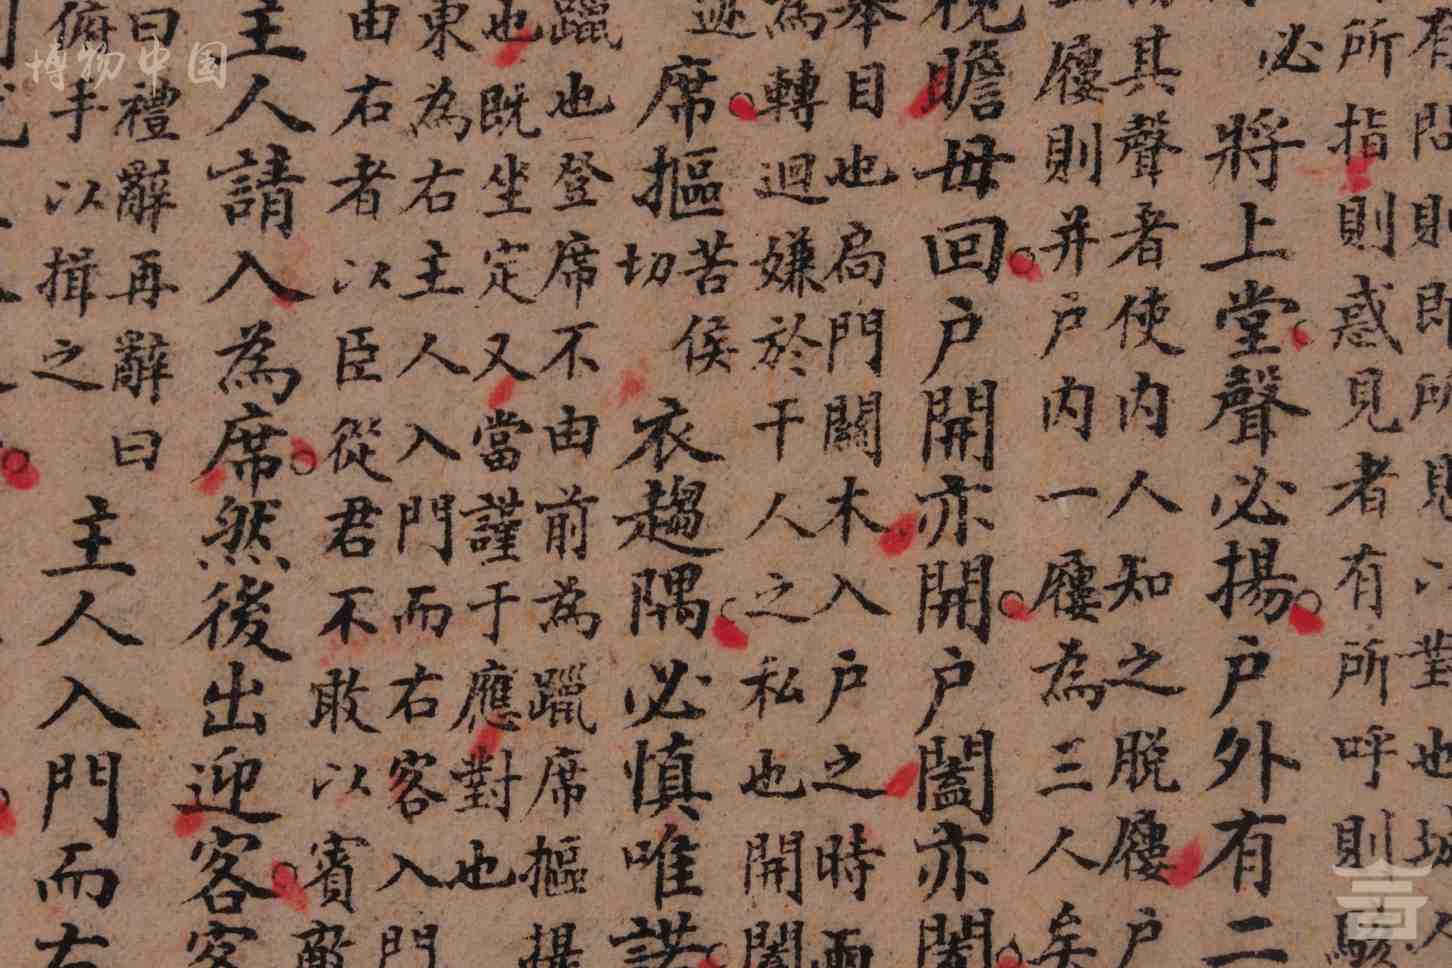 則即所
所指則惑見者有所呼則駭
必
將上堂聲必揚戶外有二
其聲者使内人知之脱屨戶
屨則并戶内一屨為三人矣
視瞻毋回戶開亦開戶闔亦闔
舉目也扃門關木入戶之時兩
為轉迴嫌於干人之私也開闔
迹
席摳
苦侯
切
衣趨隅必慎唯諾
躐也登席不由前為躐席摳提
也既坐定又當謹于應對也
東為右主人入門而右客入門
由右者以臣從君不敢以賓敵
主人請入為席然後出迎客客
曰禮辭再辭曰
俯手以揖之
主人入門而右
博物中国